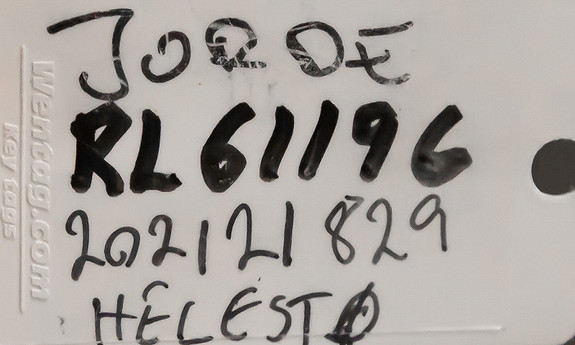 JORDE
RL61196
202121829
HELESTA
Wentag.com
Key tags